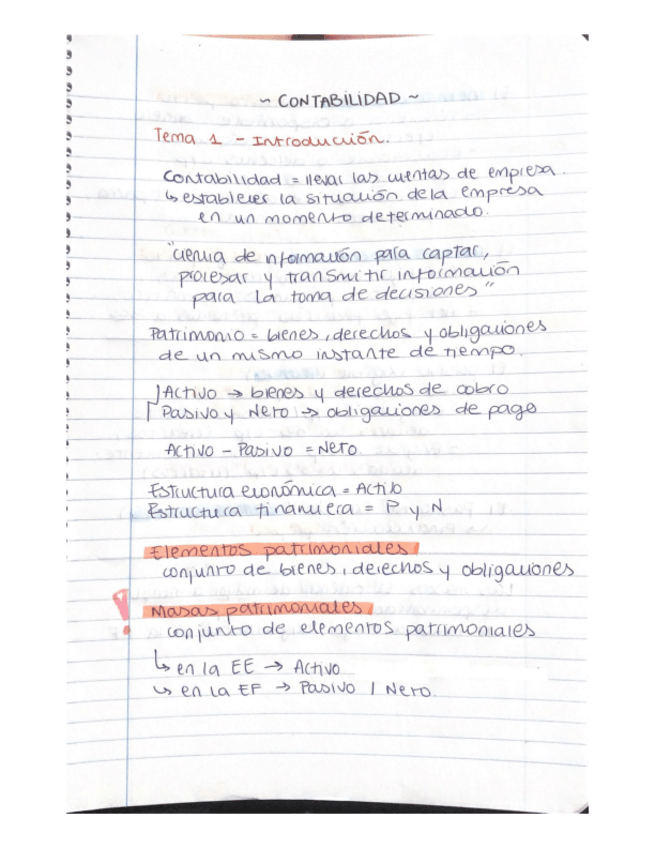 ~ CONTABILIDAD ~
Tema 1 - Introducción.
Contabilidad = llevar las cuentas de empresa.
↳ establecer la situación de la empresa
en un momento determinado.
"ciencia de información para captar,
procesar y transmitir información
para la toma de decisiones"
Patrimonio = bienes, derechos y obligaciones
de un mismo instante de tiempo.
Activo → bienes y derechos de cobro
Pasivo y Neto → obligaciones de pago
Activo - Pasivo = Neto
Estructura económica = Activo
Estructura financiera = P y N
Elementos patrimoniales
conjunto de bienes, derechos y obligaciones
! Masas patrimoniales
conjunto de elementos patrimoniales
↳ en la EE → Activo
↳ en la EF → Pasivo / Neto.